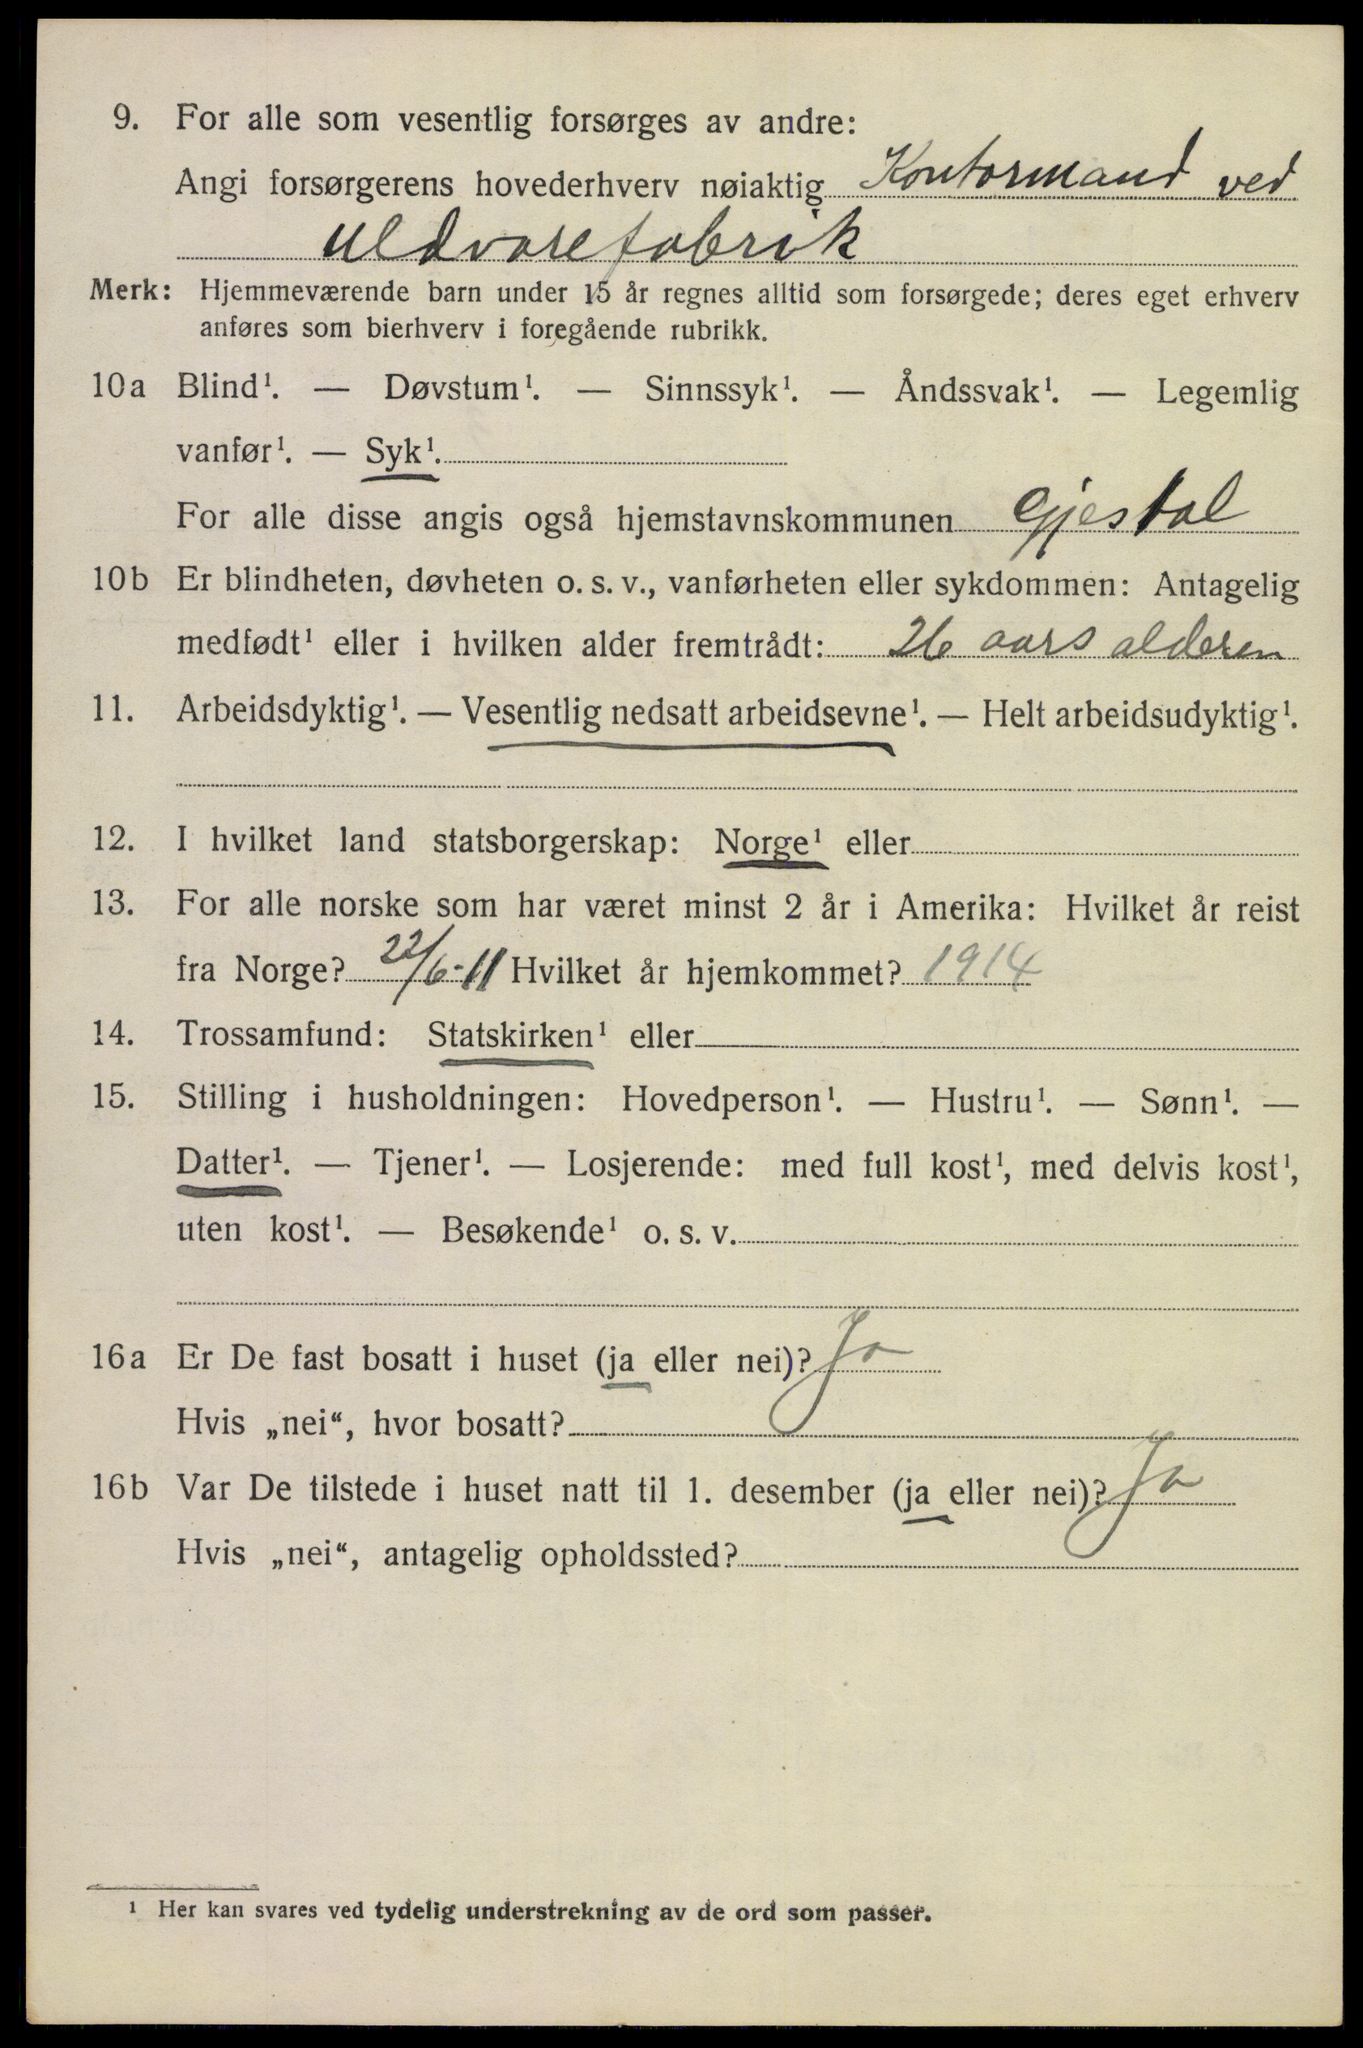 9. For alle som vesentlig forsørges av andre:
Angi forsørgerens hovederhverv nøiaktig Kontormand ved
uldvarefabrik
Merk: Hjemmeværende barn under 15 år regnes alltid som forsørgede; deres eget erhverv
anføres som bierhverv i foregående rubrikk.
10a Blind¹. — Døvstum¹. — Sinnssyk¹. — Åndssvak¹. — Legemlig
vanfør¹. — Syk¹.
For alle disse angis også hjemstavnskommunen Gjestal
10b Er blindheten, døvheten o. s. v., vanførheten eller sykdommen: Antagelig
medfødt¹ eller i hvilken alder fremtrådt: 26 aars alderen
11. Arbeidsdyktig¹. — Vesentlig nedsatt arbeidsevne¹. — Helt arbeidsudyktig¹.
12. I hvilket land statsborgerskap: Norge¹ eller
13. For alle norske som har været minst 2 år i Amerika: Hvilket år reist
fra Norge? 22/6-11 Hvilket år hjemkommet? 1914
14. Trossamfund: Statskirken¹ eller
15. Stilling i husholdningen: Hovedperson¹. — Hustru¹. — Sønn¹. —
Datter¹. — Tjener¹. — Losjerende: med full kost¹, med delvis kost¹,
uten kost¹. — Besøkende¹ o. s. v.
16a Er De fast bosatt i huset (ja eller nei)? Ja
Hvis „nei“, hvor bosatt?
16b Var De tilstede i huset natt til 1. desember (ja eller nei)? Ja
Hvis „nei“, antagelig opholdssted?
¹ Her kan svares ved tydelig understrekning av de ord som passer.